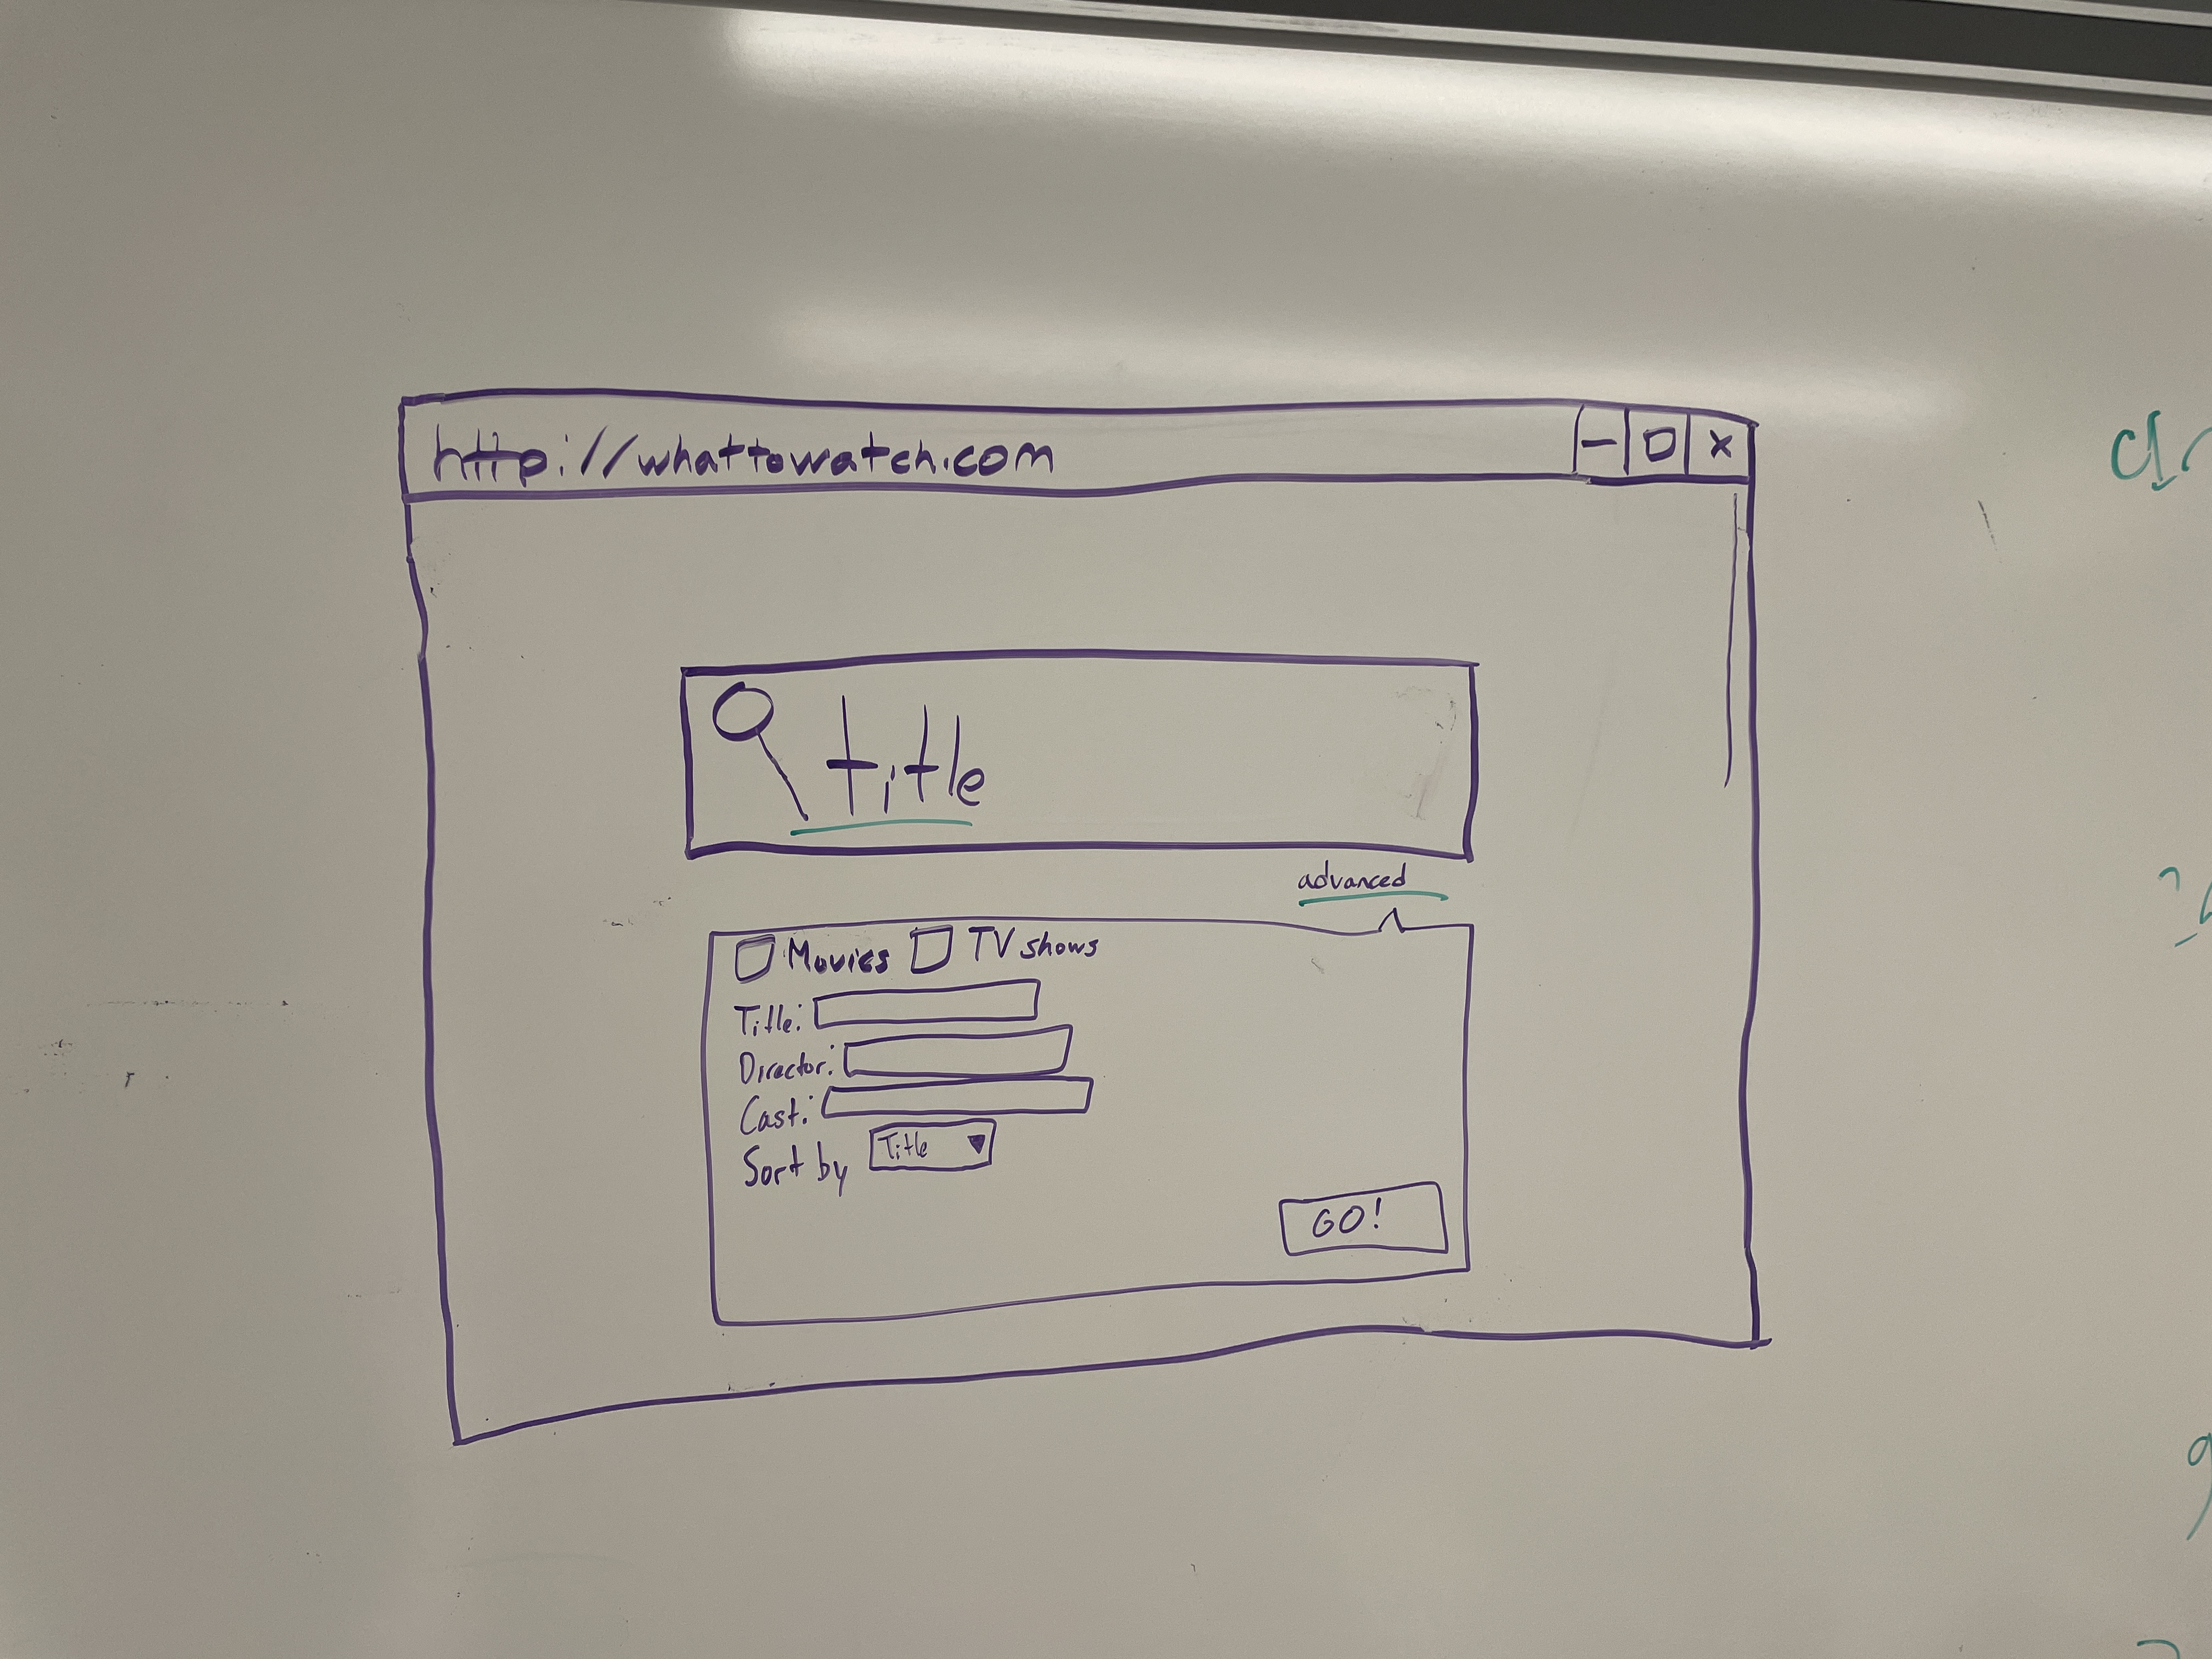 http://whattowatch.com
title
advanced
Movies TV shows
Title:
Director:
Cast:
Sort by Title
GO!